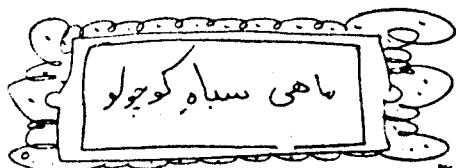 ماهی سیاهِ کوچولو